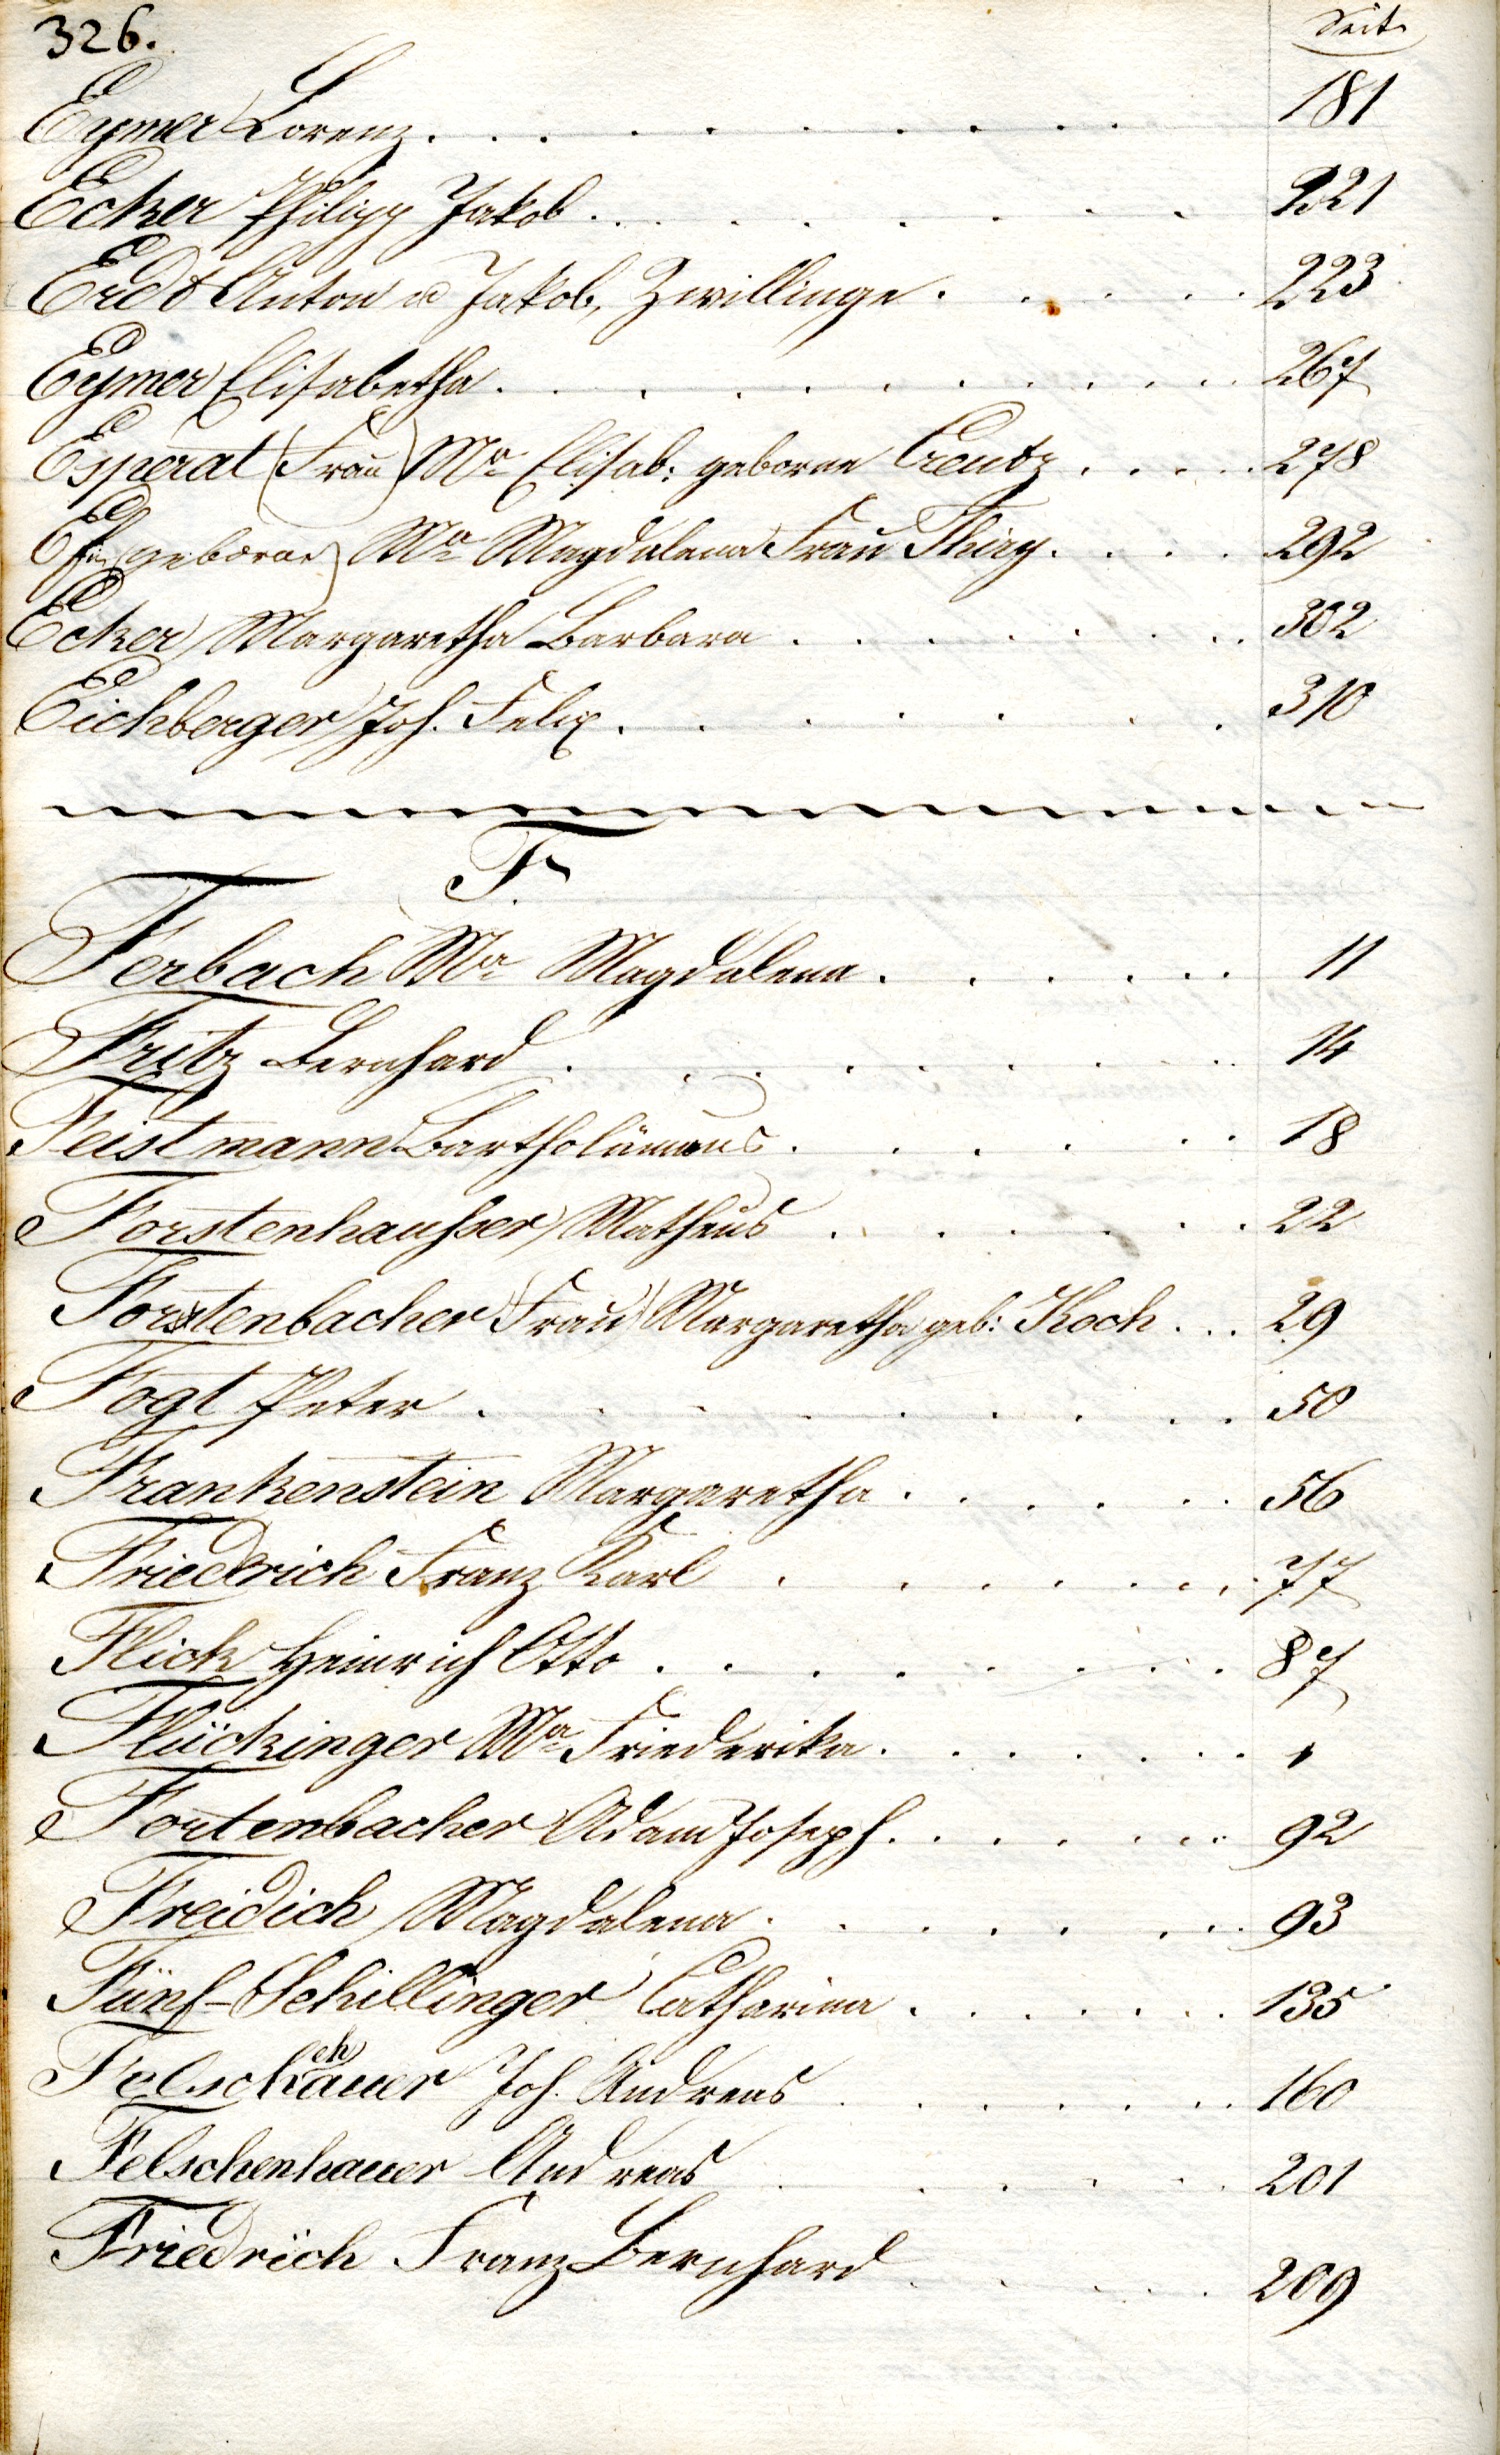 326.
Seite
Eymer Lorenz. . . . . . . . . . 181
Ecker Philipp Jakob . . . . . . . 221
Erdt Anton u Jakob, Zwillinge . . . . . 223
Eymer Elisabetha . . . . . . . . . 267
Esperat (Frau) Ma Elisab: geborne Creutz . . . . . 278
geborne) Ma Magdalena Frau Thiry . . . . 292
Ecker Margaretha Barbara . . . . . . . 302
Eichberger Joh. Felix . . . . . . . 310
F.
Ferbach Ma Magdalena . . . . . . 11
Fritz Bernhard . . . . . . . . 14
Feistmann Bartholämaus . . . . . . 18
Forstenhaußer Matheus . . . . . . 22
Forstenbacher (Frau) Margaretha geb: Koch . . . 29
Fogt Peter . . . . . . . . . 50
Frankenstein Margaretha . . . . . . 56
Friederich Franz Karl . . . . . . . 77
Flick Heinrich Otto . . . . . . . . 87
Flückinger Ma Friederika . . . . . . . "
Fortenbacher Adam Joseph . . . . . . . 92
Freidich Magdalena . . . . . . . 93
Fünf-Schillinger Catharina . . . . . . 135
eh
Felschauer Joh. Andreas . . . . . . . 160
Felschenhauer Andreas . . . . . . 201
Friedrich Franz Bernhard . . . . . . 209